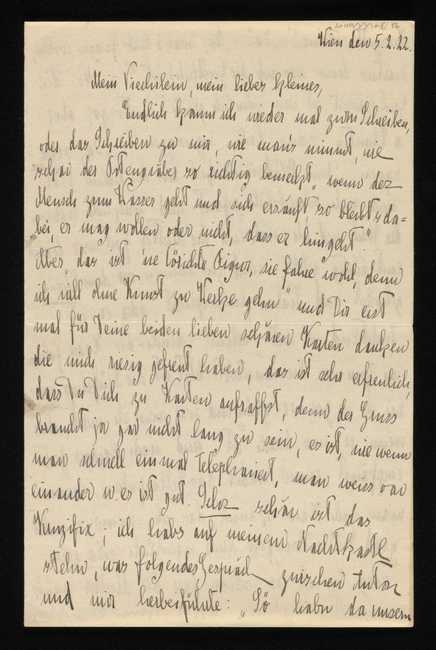 Wien den 5.2.22.
Mein Viecherlein, mein liebes kleines,
Endlich kann ich wieder mal zum Schreiben,
oder das Schreiben zu mir, wie man's nimmt, wie
schon der Totengräber so richtig bemerkt, "wenn der
Mensch zum Wasser geht und sich ersäuft so bleibt's da-
bei, er mag wollen oder nicht, dass er hingeht"
Also, das ist 'ne törichte Figur, sie fahre wohl, denn
ich will ohne Kunst zu Werke gehn" und Dir erst
mal für Deine beiden lieben schönen Karten danken
die mich riesig gefreut haben, das ist sehr erfreulich,
dass Du Dich zu Karten aufraffst, denn der Gruss
braucht ja gar nicht lang zu sein, es ist, wie wenn
man schnell einmal telephoniert, man weiss von
einander u es ist gut. Sehr schön ist das
Kruzifix, ich habs auf meinem Nachtkastl
stehn, was folgendes Gespräch zwischen Anton
und mir herbeiführte: "Sö habn da unsern